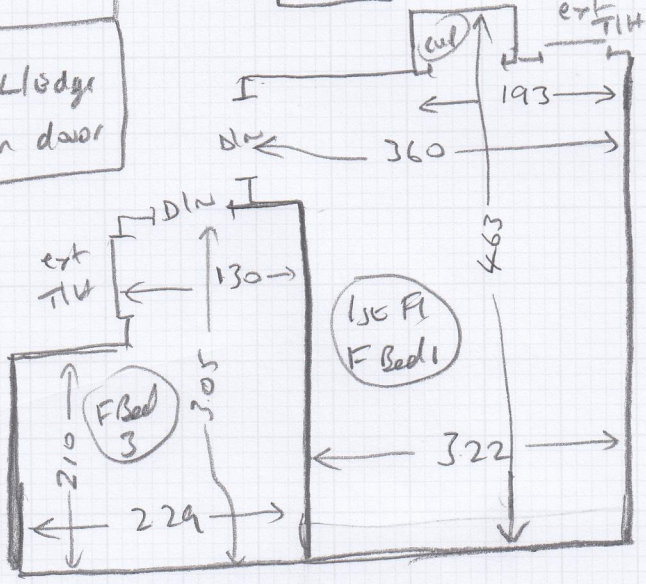 L/edge
n door
cup
ext
T/H
193
D/N
360
D/N
ext
T/H
130
463
1st Fl
F Bed 1
3.05
F Bed
3
210
3.22
229